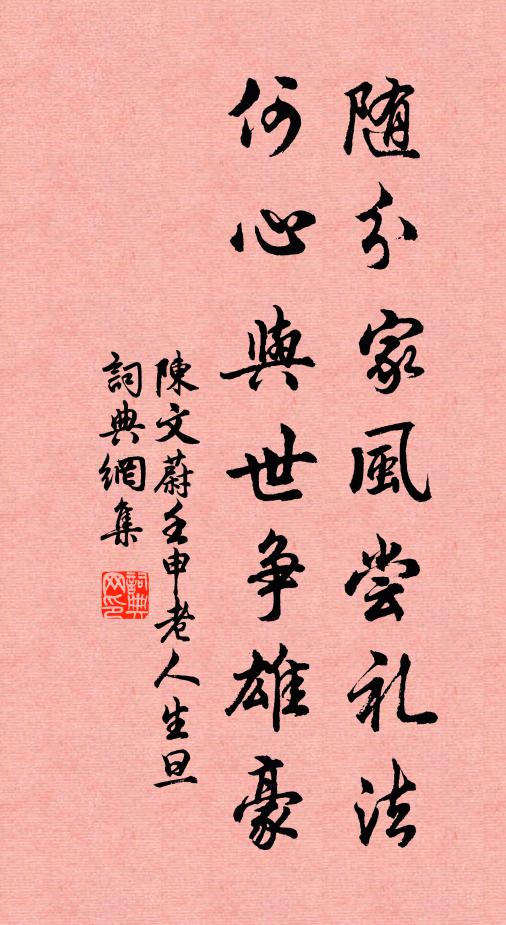 随分家風尝礼法
何心與世争雄豪
陳文蔚壬申老人生旦
詞典網集
詞典网印